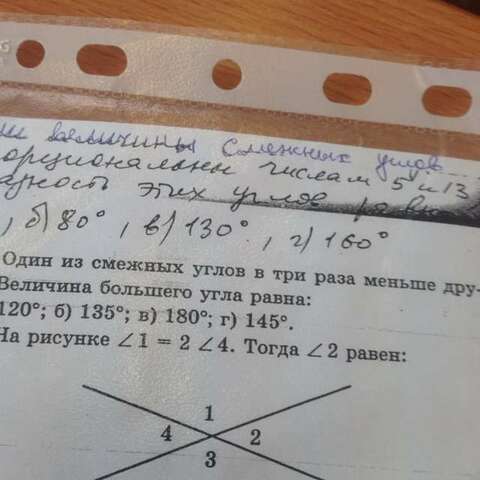 величины смежных углов
порциональны числам 5 и 13
азность этих углов равна
, б) 80°, в) 130°, г) 160°
Один из смежных углов в три раза меньше дру-
Величина большего угла равна:
120°; б) 135°; в) 180°; г) 145°.
На рисунке ∠1 = 2 ∠4. Тогда ∠2 равен:
1
4 2
3